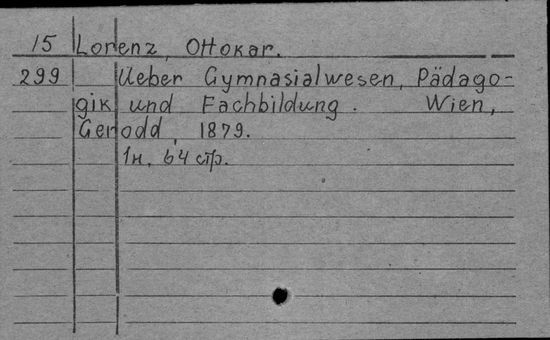 15 Lorenz, Ottokar.
299 Ueber Gymnasialwesen, Pädago-
gik und Fachbildung. Wien,
Gerodd, 1879.
1н, 64 стр.